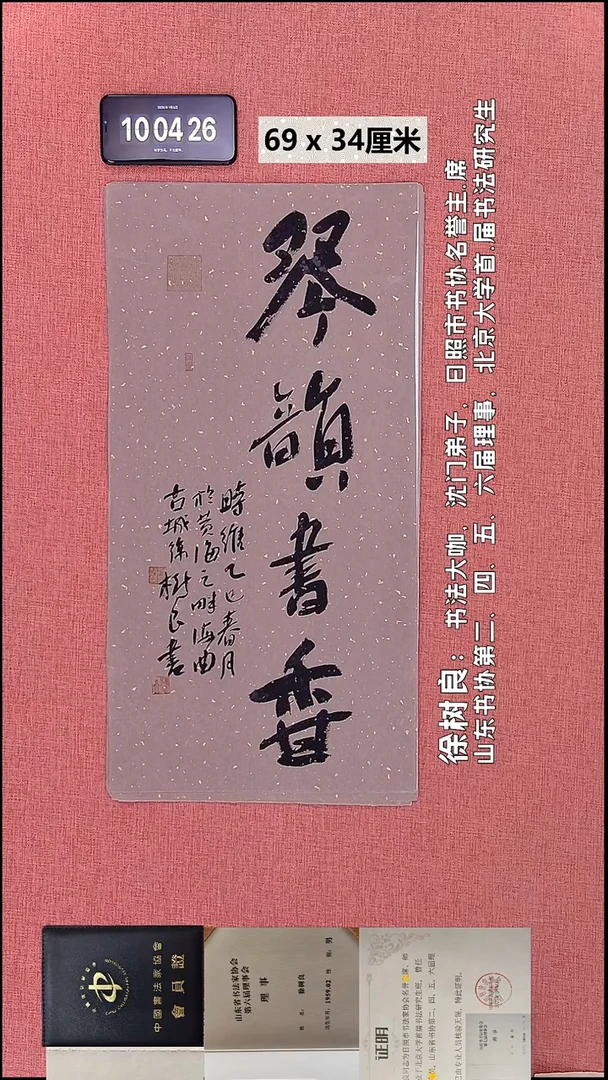 10 04 26
69 x 34厘米
琴韻書香
時維乙巳春月
於黄海之畔海曲
古城徐樹良書
徐树良：书法大咖，沈门弟子，日照市书协名誉主.席
山东书协第二、四、五、六届理事，北京大学首.届书法研究生
中國書法家協會
會員證
山东省书法家协会
第六届理事会
理事
姓名：徐树良
出生年月：1959.02 性别：男
证明